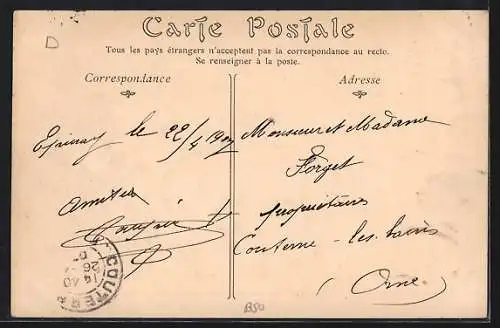 D
Carte Postale
Tous les pays étrangers n'acceptent pas la correspondance au recto.
Se renseigner à la poste.
Correspondance
Adresse
Epinay le 22/4 1907
Monsieur et Madame
Forget
propriétaires
Amitiés
Couterne-les-bains
(Orne
COUTER
14 40
26
B50